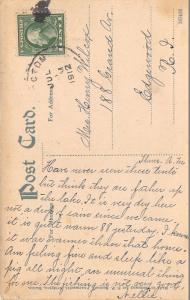 Post Card.
For Address
JUL
1912
Mrs. Henry Wilcox
188 Grand Ave
Edgewood
R. I.
Have never seen those tents
but think they are farther up
the lake. It is very dry here
not a drop of rain since we came
it is quite warm 88 yesterday. I know
it was warmer than that home.
Am feeling fine and sleep like a
pig all night, an unusual thing
for me so the change is not doing
Nellie